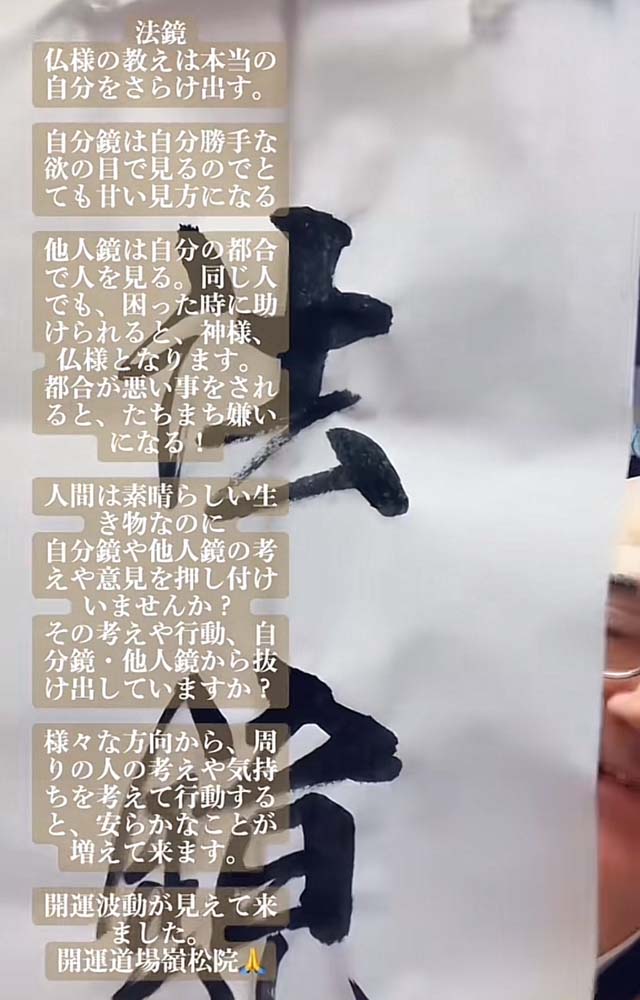 法鏡
仏様の教えは本当の
自分をさらけ出す。
自分鏡は自分勝手な
欲の目で見るのでと
ても甘い見方になる
他人鏡は自分の都合
で人を見る。同じ人
でも、困った時に助
けられると、神様、
仏様となります。
都合が悪い事をされ
ると、たちまち嫌い
になる！
人間は素晴らしい生
き物なのに
自分鏡や他人鏡の考
えや意見を押し付け
いませんか？
その考えや行動、自
分鏡・他人鏡から抜
け出していますか？
様々な方向から、周
りの人の考えや気持
ちを考えて行動する
と、安らかなことが
増えて来ます。
開運波動が見えて来
ました。
開運道場嶺松院🙏
法